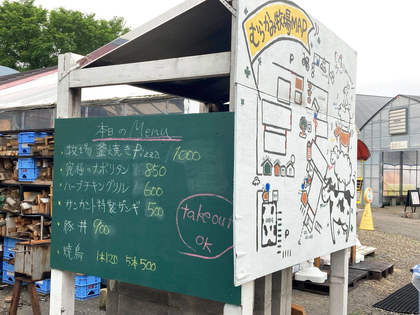 むらかみ牧場MAP
本日のMenu
・牧場釜焼きPizza 1000
・究極のナポリタン 850
・ハーブチキングリル 600
・サンカント特製ザンギ 500
・豚丼 900
・焼鳥 1本120 5本500
takeout
OK
P
P